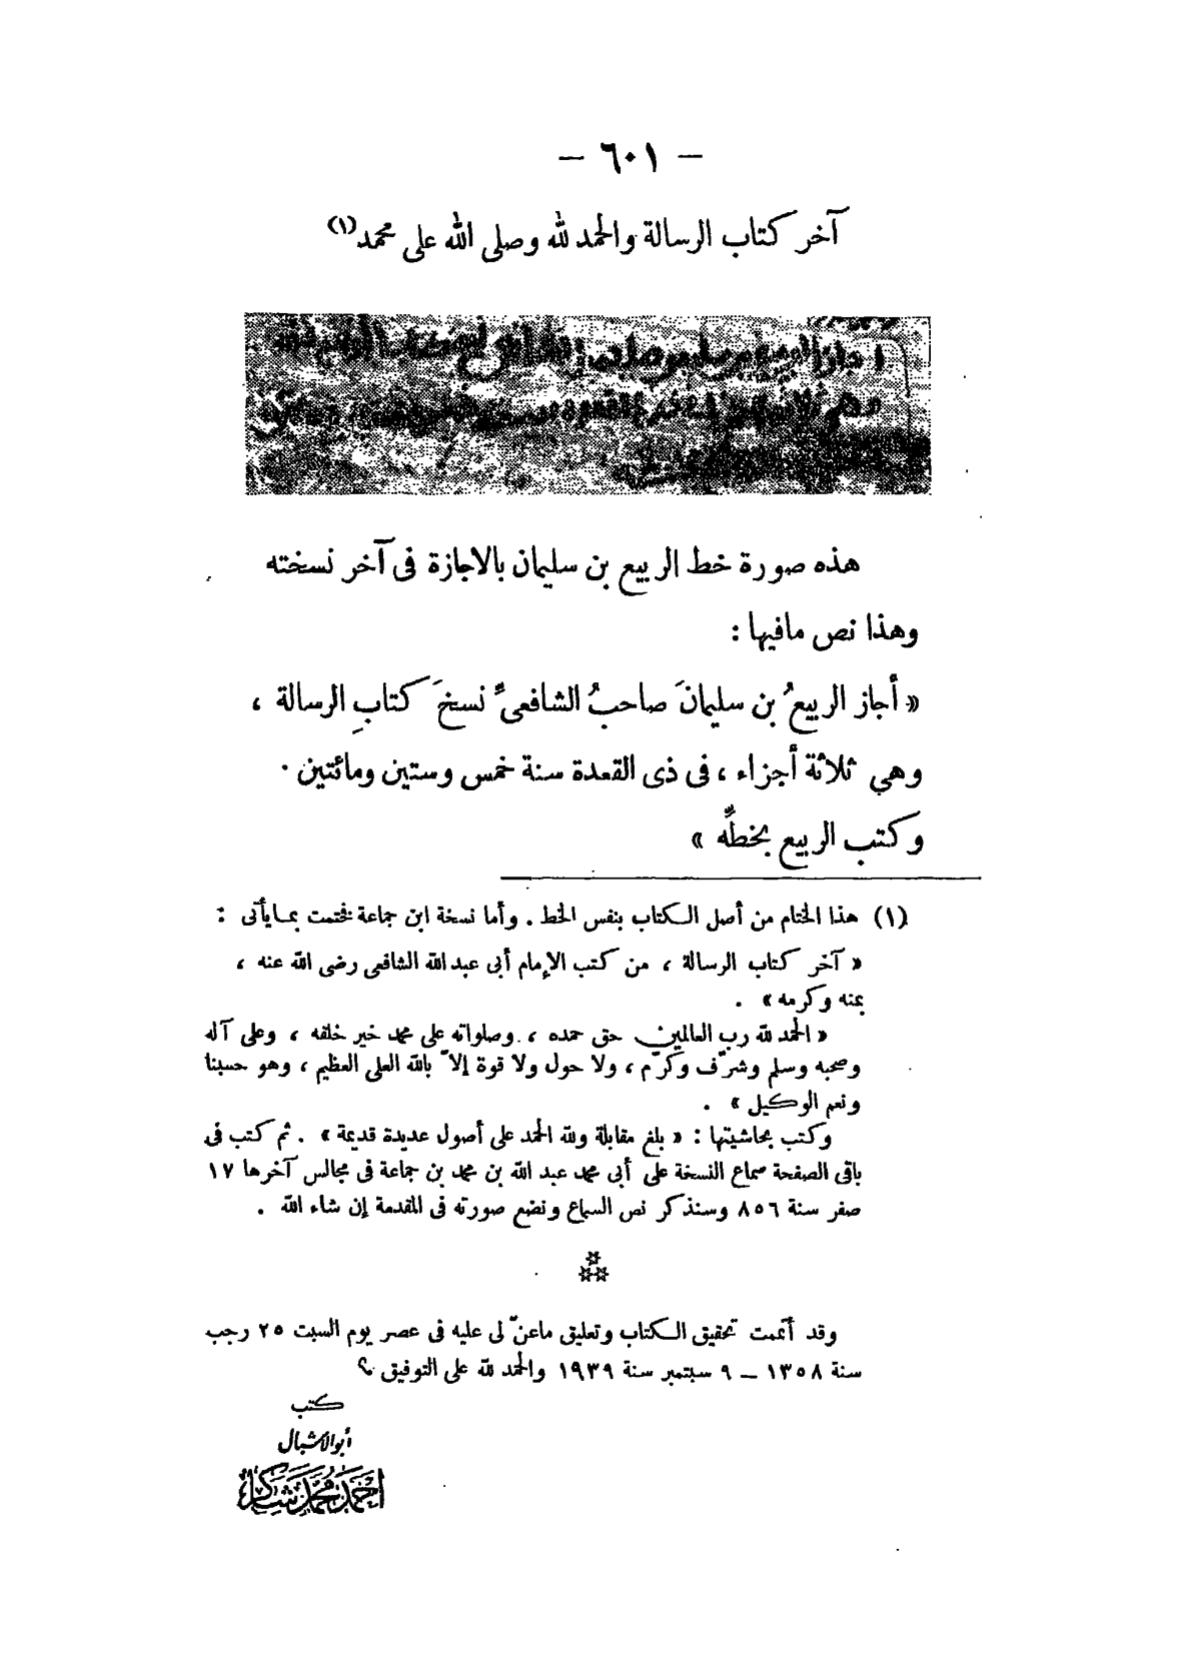 — ٦٠١ —
آخر كتاب الرسالة والحمد لله وصلى الله على محمد(١)
هذه صورة خط الربيع بن سليمان بالاجازة فى آخر نسخته
وهذا نص مافيها :
« أجاز الربيعُ بن سليمانَ صاحبُ الشافعىِّ نسخَ كتابِ الرسالة ،
وهي ثلاثة أجزاء ، فى ذى القعدة سنة خمس وستين ومائتين ·
وكتب الربيع بخطِّه »
(١) هذا الختام من أصل الكتاب بنفس الخط . وأما نسخة ابن جماعة فختمت بمـا يأتى :
« آخر كتاب الرسالة ، من كتب الإمام أبى عبد الله الشافعى رضى الله عنه ،
بمنه وكرمه » .
« الحمد لله رب العالمين حق حمده ، وصلواته على محمد خير خلقه ، وعلى آله
وصحبه وسلم وشرّف وكرّم ، ولا حول ولا قوة إلاّ بالله العلى العظيم ، وهو حسبنا
ونعم الوكيل » .
وكتب بحاشيتها : « بلغ مقابلة ولله الحمد على أصول عديدة قديمة » . ثم كتب فى
باقى الصفحة سماع النسخة على أبى محمد عبد الله بن محمد بن جماعة فى مجالس آخرها ١٧
صفر سنة ٨٥٦ وسنذكر نص السماع ونضع صورته فى المقدمة إن شاء الله .
وقد أتممت تحقيق الكتاب وتعليق ماعنّ لى عليه فى عصر يوم السبت ٢٥ رجب
سنة ١٣٥٨ — ٩ سبتمبر سنة ١٩٣٩ والحمد لله على التوفيق
كتب
أبو الأشبال
أحمد محمد شاكر